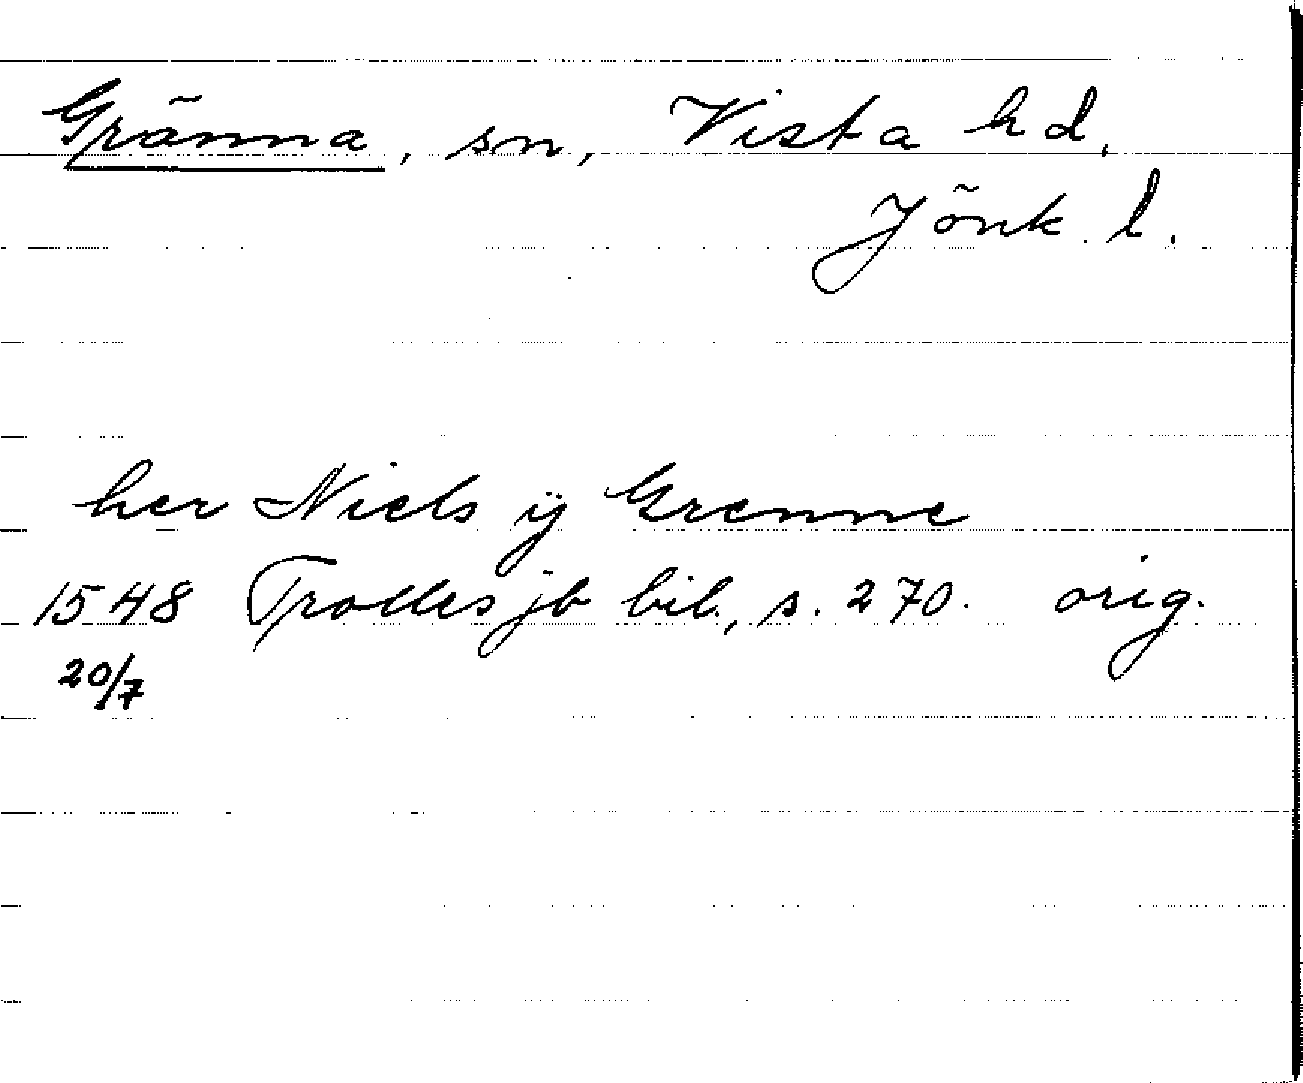 Gränna, sn, Vista hd,
Jönk. l.
her Niels ij Grenne
1548 Trolles jb bil., s. 270. orig.
20/7